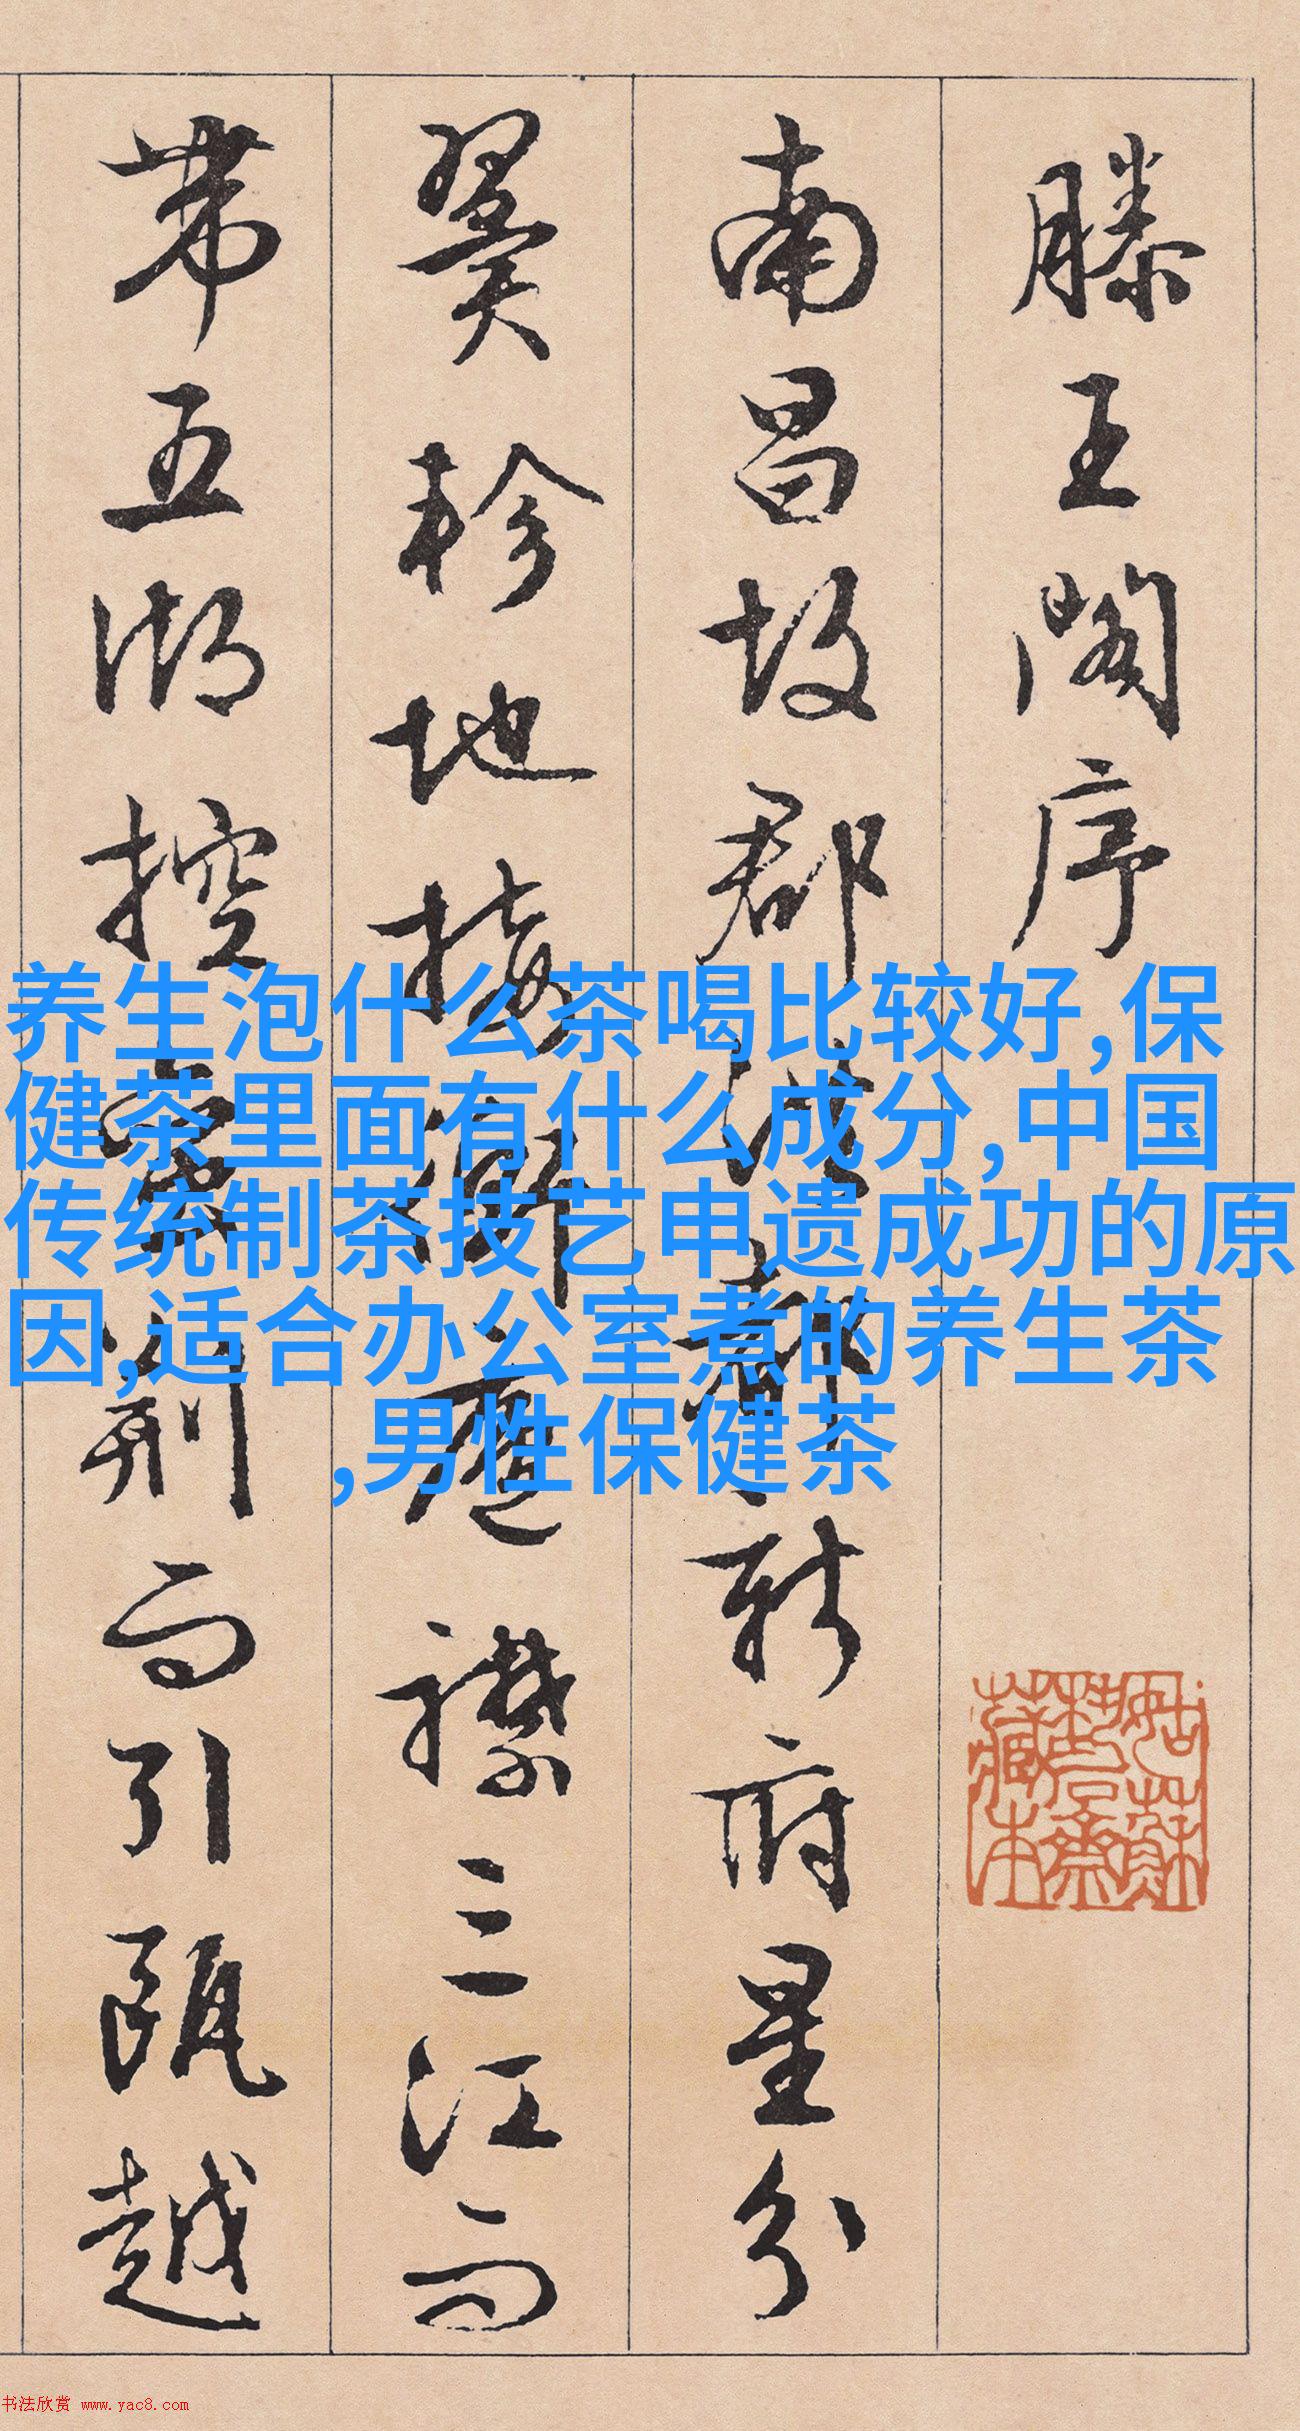 滕王阁序
南昌故郡洪都新府星分
翼轸地接衡庐襟三江而
带五湖控蛮荆而引瓯越
养生泡什么茶喝比较好,保
健茶里面有什么成分,中国
传统制茶技艺申遗成功的原
因,适合办公室煮的养生茶
,男性保健茶
书法欣赏 www.yac8.com